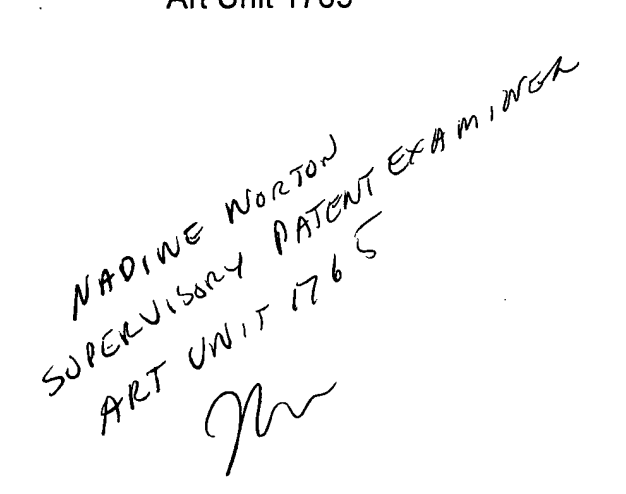 Art Unit 1765
NADINE NORTON
SUPERVISORY PATENT EXAMINER
ART UNIT 1765